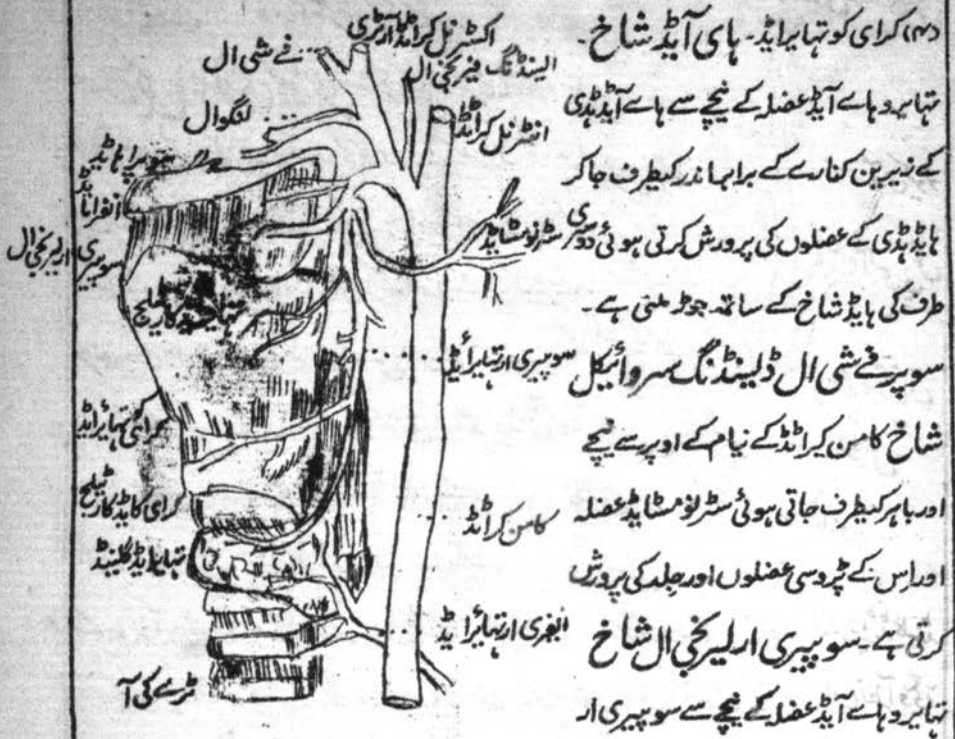 (۳) کرای کو تہایرایڈ۔ ہای آیڈ شاخ۔
تہایروہاے آیڈ عضلہ کے نیچے سے ہاے آیڈ ہڈی
کے زیرین کنارے کے برابر اندر کیطرف جا کر
ہایڈ ہڈی کے عضلوں کی پرورش کرتی ہوئی دوسری
طرف کی ہایڈ شاخ کے ساتھ جوڑ ملتی ہے۔
سوپرفے شی ال ڈلینڈنگ سروائیکل
شاخ کامن کیراٹڈ کے نیام کے اوپر سے نیچے
اور باہر کیطرف جاتی ہوئی سٹرنومسٹایڈ عضلہ
اور اس کے پڑوسی عضلوں اور جلد کی پرورش
کرتی ہے۔ سوپیری ار لیرنجی ال شاخ
تہایروہاے آیڈ عضلہ کے نیچے سے سوپیری ار
اکسٹرنل کراٹڈ آرٹری
فے شی ال
اسینڈنگ فیرنجی ال
لنگوال
انٹرنل کراٹڈ
سوپراہایڈ
انفراہایڈ
سوپیری ار لیرنجی ال
سٹرنومسٹایڈ
تہایرایڈ کارٹیلیج
سوپیری ار تہایرائیڈ
کرای کو تہایرایڈ
کرای کایڈ کارٹیلیج
کامن کراٹڈ
تہایرایڈ گلینڈ
انفیری ار تہائیرایڈ
ٹرے کی آ